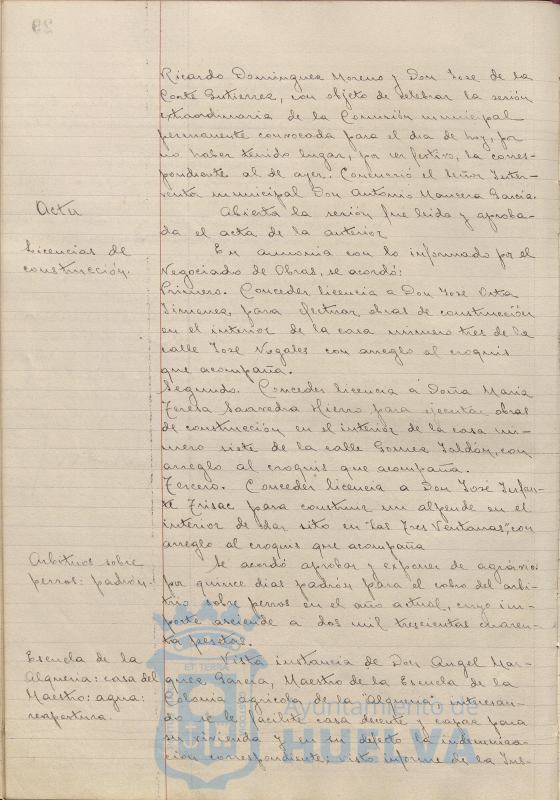 Ricardo Dominguez Moreno y Don José de la
Corte Gutierrez, con objeto de celebrar la sesión
extraordinaria de la Comisión municipal
permanente convocada para el dia de hoy, por
no haber tenido lugar, por ser festivo, la corres-
pondiente al de ayer. Concurrió el Señor Inter-
ventor municipal Don Antonio Mancera Garcia.
Acta
Abierta la sesión fue leida y aproba-
da el acta de la anterior
Licencias de
construcción.
En armonia con lo informado por el
Negociado de Obras, se acordó:
Primero. Conceder licencia a Don José Orta
Jimenez, para efectuar obras de construcción
en el interior de la casa número tres de la
calle José Nogales con arreglo al croquis
que acompaña.
Segundo. Conceder licencia a Doña Maria
Teresa Saavedra Hierro para ejecutar obras
de construcción en el interior de la casa nú-
mero siete de la calle Gomez Jaldón, con
arreglo al croquis que acompaña.
Tercero. Conceder licencia a Don José Infan-
te para construir un alpende en el
interior de sito en "Las Tres Ventanas", con
arreglo al croquis que acompaña
Arbitrios sobre
perros: padrón.
Se acordó aprobar y exponer de agravios
por quince dias padrón para el cobro del arbi-
trio sobre perros en el año actual, cuyo im-
porte asciende a dos mil trescientas cuaren-
ta pesetas.
Escuela de la
Alqueria: casa del
Maestro: agua:
reapertura.
Vista instancia de Don Angel Mar-
quez Garcia, Maestro de la Escuela de la
Colonia agricola de la "Alqueria" interesan-
do se le facilite casa decente y capaz para
su vivienda y en su defecto la indemniza-
ción correspondiente; visto informe de la Ins-
ET TERRAE
Ayuntamiento de
HUELVA